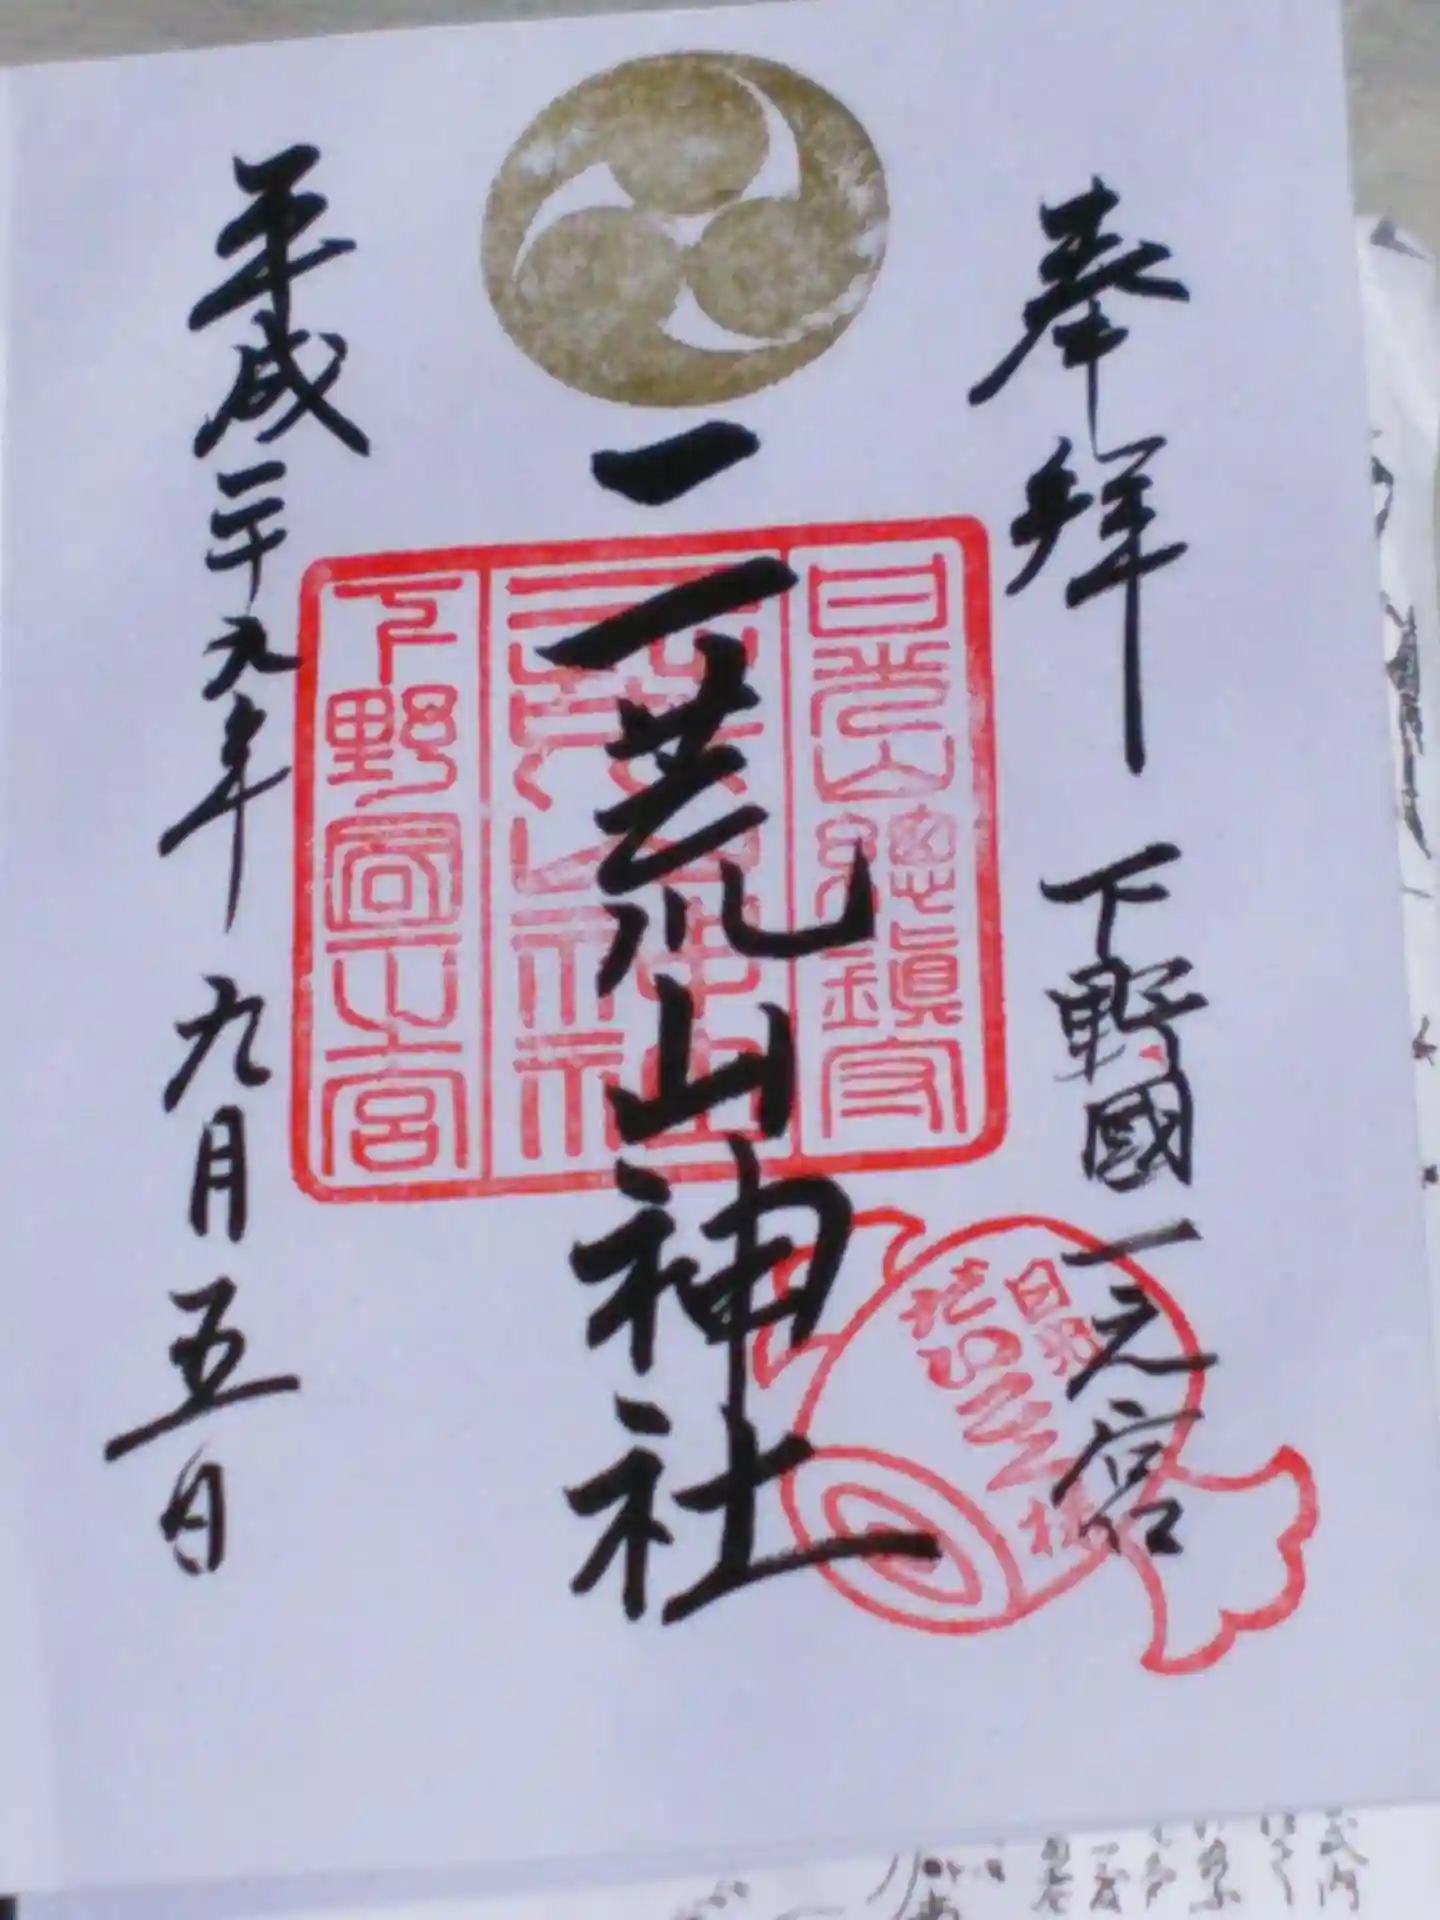 奉拝
下野國一之宮
二荒山神社
日光山總鎮守
二荒山神社
下野國一宮
日光
だいこく様
平成二十九年九月五日